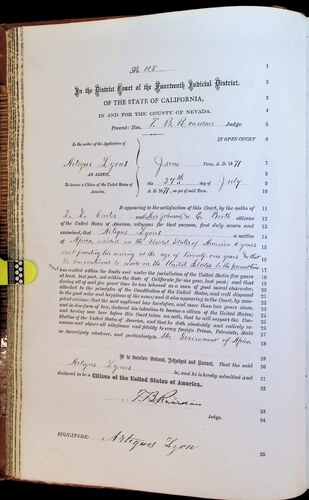 No 108
In the District Court of the Fourteenth Judicial District,
OF THE STATE OF CALIFORNIA,
IN AND FOR THE COUNTY OF NEVADA.
Present: Hon. T. B. Reardan Judge.
IN OPEN COURT
In the matter of the Application of
Artigus Lyons
AN ALIEN,
To become a Citizen of the United States of America.
June Term, A. D. 1871
this 27th day of July
A. D. 1871
It appearing to the satisfaction of this Court, by the oaths of
and C. Booth citizens
of the United States of America, witnesses for that purpose, first duly sworn and
examined, that Artigus Lyons a native
of Africa arrived in the United States of America
the age of twenty-one years
United States to the present time
has resided within the States and under the jurisdiction of the United States five years
at least, last past, and within the State of California for one year, last past; and that
during all of said five years' time he has behaved as a man of good moral character,
attached to the principles of the Constitution of the United States, and well disposed
to the good order and happiness of the same; and it also appearing to the Court, by com-
petent evidence that the said applicant has heretofore, and more than two years since,
and in due form of law, declared his intention to become a citizen of the United States;
and having now here before this Court taken an oath, that he will support the Con-
stitution of the United States of America, and that he doth absolutely and entirely re-
nounce and abjure all allegiance and fidelity to every foreign Prince, Potentate, State
or Sovereignty whatever, and particularly, the Government of Africa
It is therefore Ordered, Adjudged and Decreed, That the said
Artigus Lyons be, and he is hereby admitted and
declared to be a Citizen of the United States of America.
T. B. Reardan
Judge.
SIGNATURE: Artigus Lyon
1
2
3
4
5
6
7
8
9
10
11
12
13
14
15
16
17
18
19
20
21
22
23
24
25
26
27
28
29
30
31
32
33
34
35